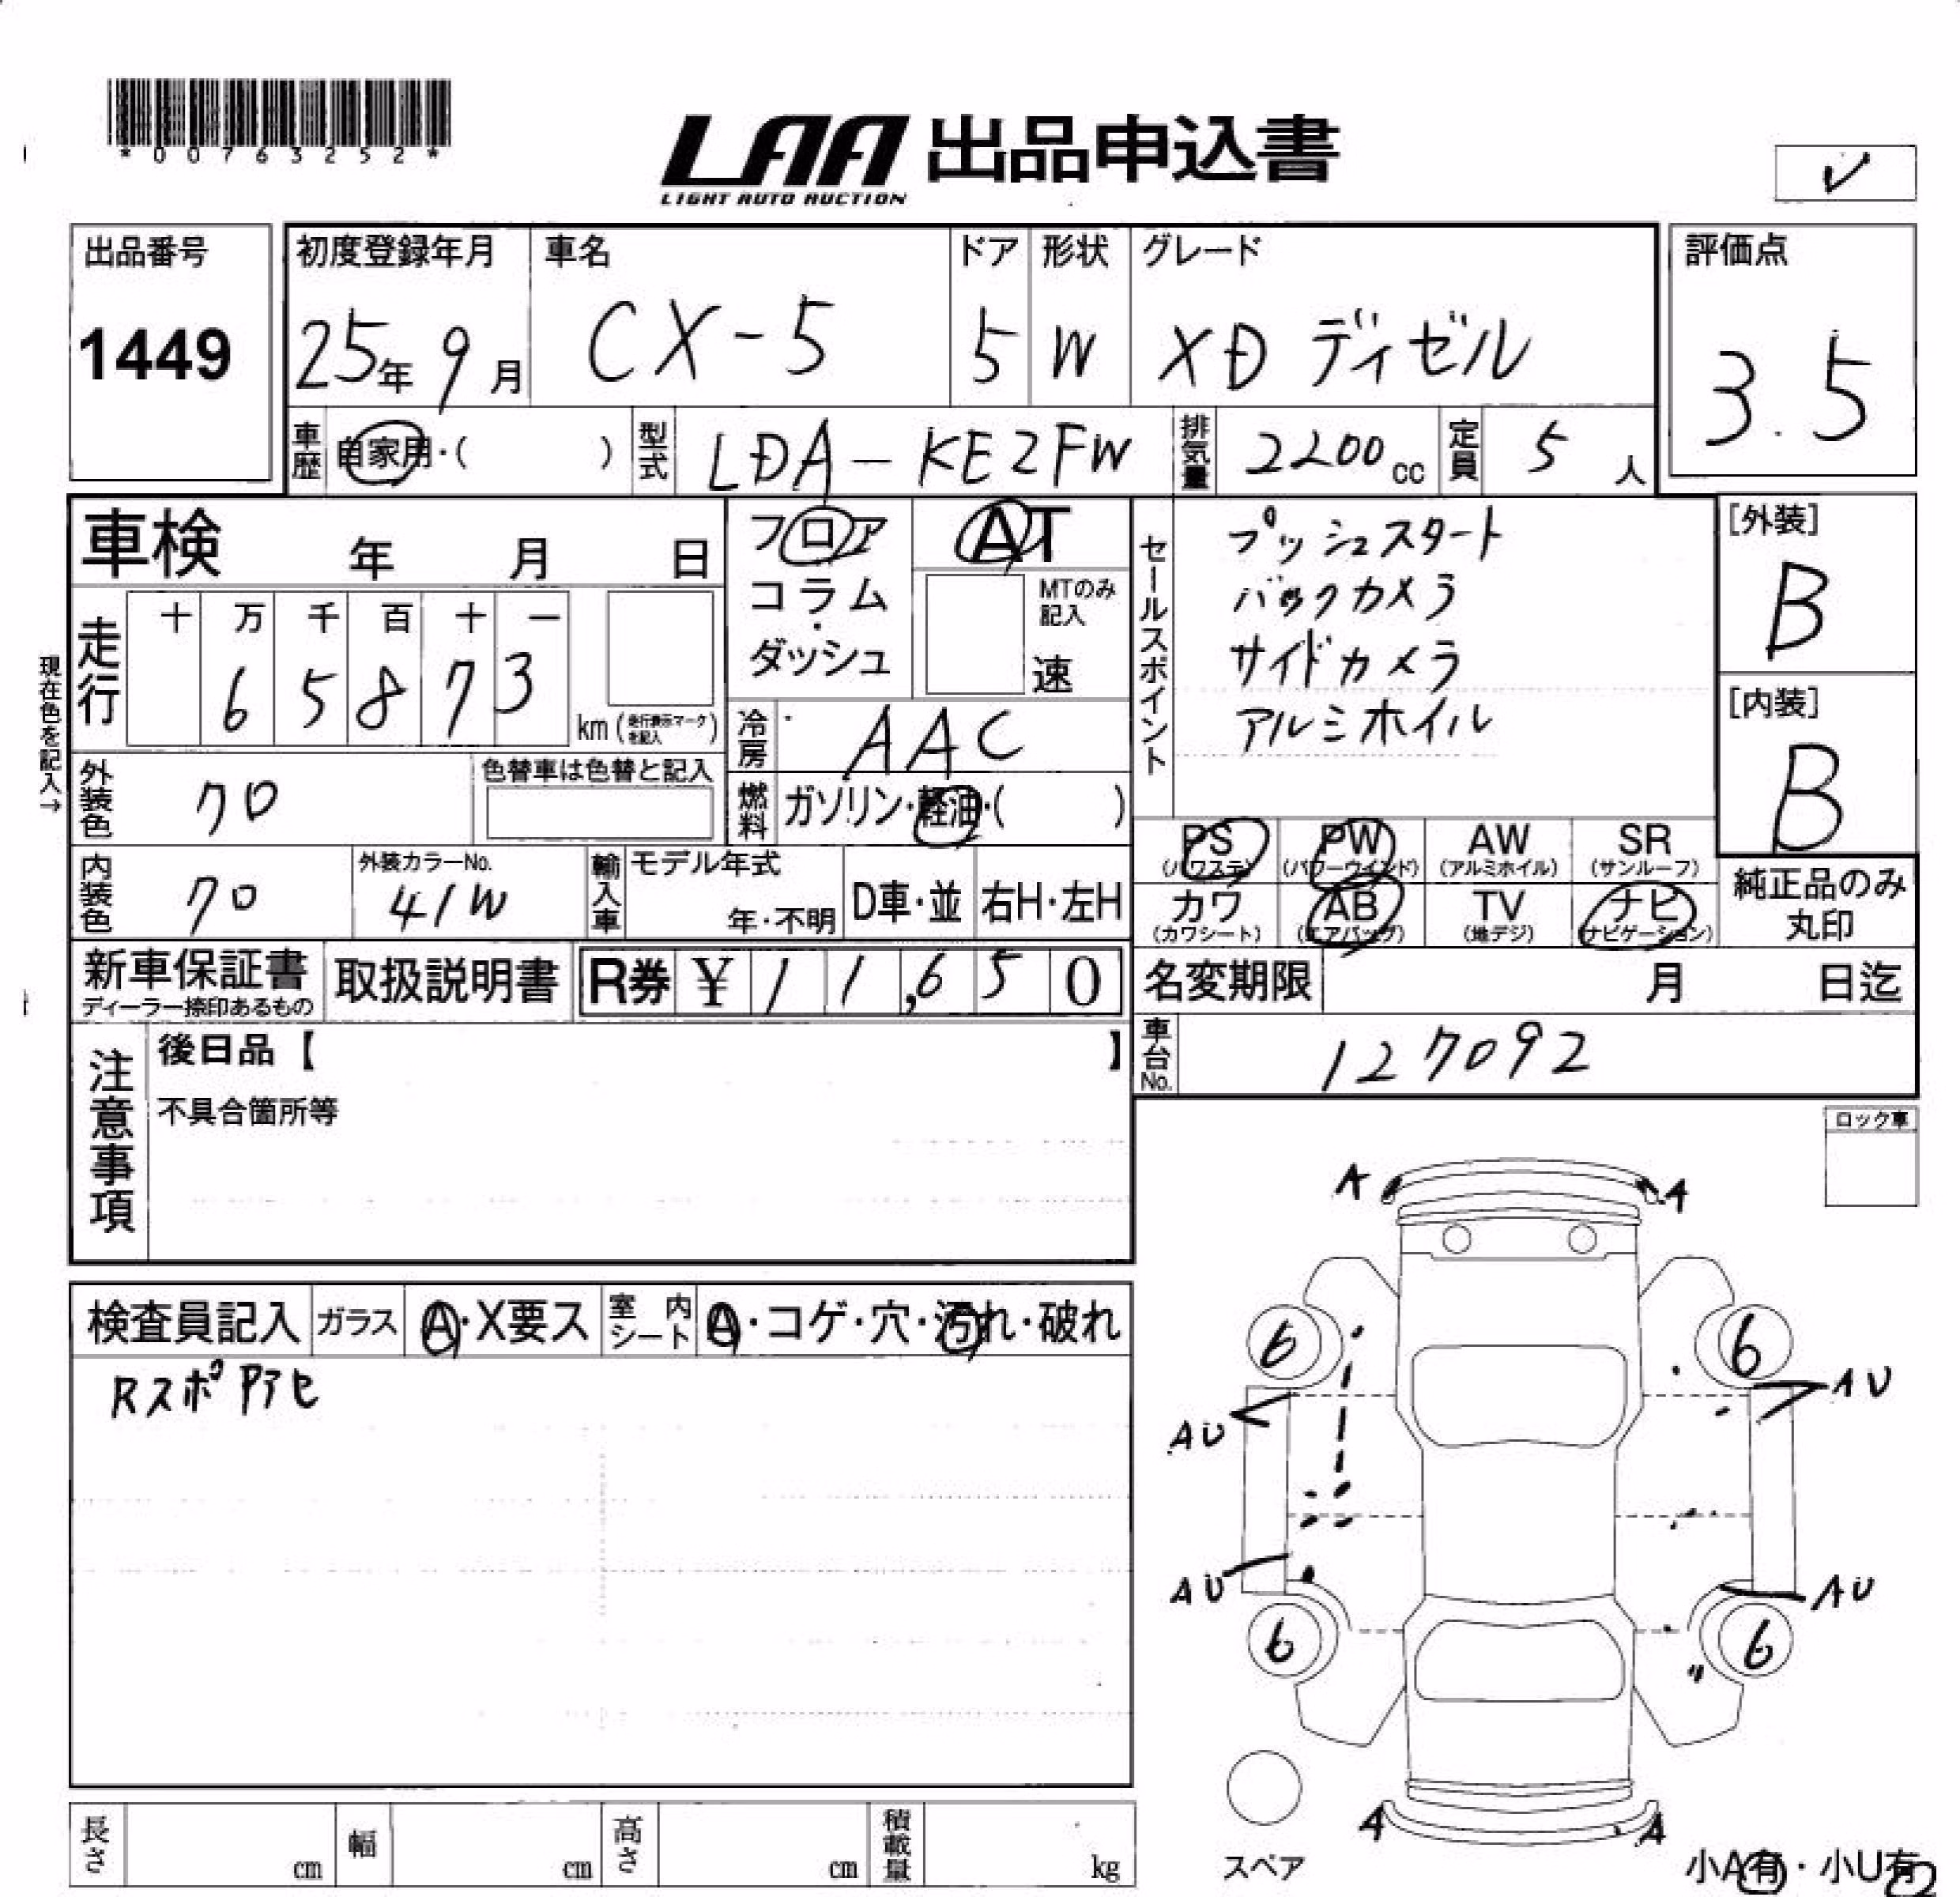 *00763252*
LAA 出品申込書
LIGHT AUTO AUCTION
レ
出品番号
1449
初度登録年月
25年9月
車名
CX-5
ドア
5
形状
W
グレード
XD ディーゼル
評価点
3.5
車歴 自家用・( )
型式 LDA-KE2FW
排気量 2200cc
定員 5人
車検 年 月 日
フロア
コラム
・
ダッシュ
AT
MTのみ記入
速
セールスポイント
プッシュスタート
バックカメラ
サイドカメラ
アルミホイル
[外装]
B
[内装]
B
現在色を記入→
走行
十 万 千 百 十 一
6 5 8 7 3
km(走行表示マークを記入)
冷房 AAC
燃料 ガソリン・軽油・( )
外装色 クロ
色替車は色替と記入
内装色 クロ
外装カラーNo.
41W
輸入車
モデル年式
年・不明
D車・並
右H・左H
PS
(パワステ)
PW
(パワーウインド)
AW
(アルミホイル)
SR
(サンルーフ)
カワ
(カワシート)
AB
(エアバッグ)
TV
(地デジ)
ナビ
(ナビゲーション)
純正品のみ
丸印
新車保証書
ディーラー捺印あるもの
取扱説明書
R券 ¥ 1 1,6 5 0
名変期限 月 日迄
車台No. 127092
注意事項
後日品【 】
不具合箇所等
ロック車
検査員記入
ガラス A・X要ス
室内シート A・コゲ・穴・汚れ・破れ
A A
6 6
AU AU
AU AU
6 6
A A
スペア
小A有・小U有
長さ cm
幅 cm
高さ cm
積載量 kg